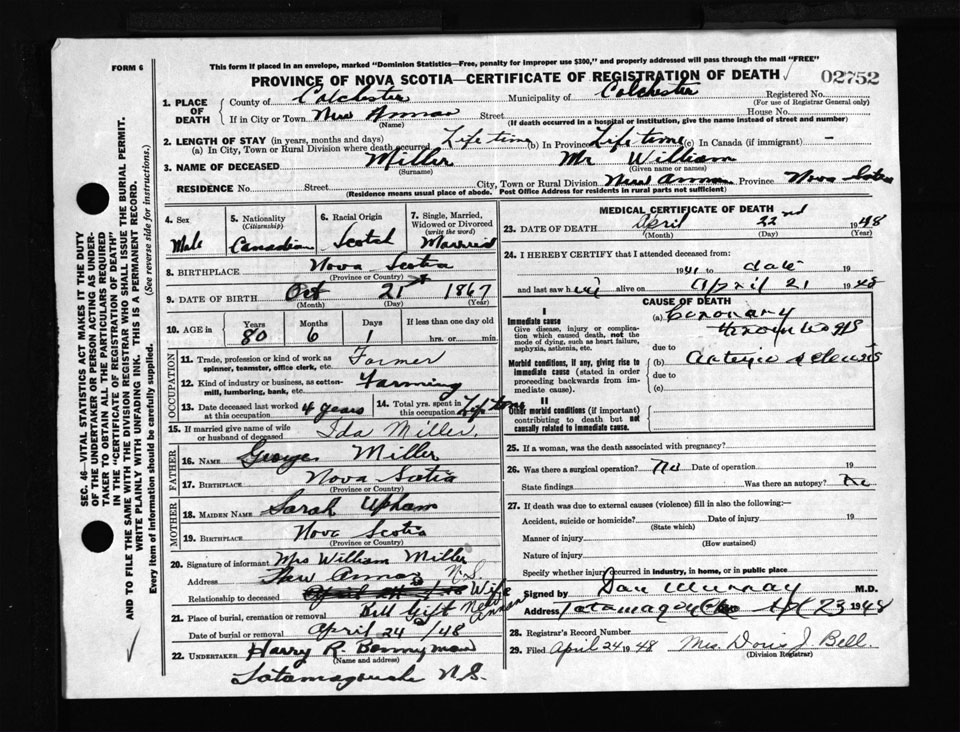 FORM 6
This form if placed in an envelope, marked "Dominion Statistics—Free, penalty for improper use $300," and properly addressed will pass through the mail "FREE"
PROVINCE OF NOVA SCOTIA—CERTIFICATE OF REGISTRATION OF DEATH
02752
1. PLACE OF DEATH
County of Colchester Municipality of Colchester Registered No.
(For use of Registrar General only)
If in City or Town New Annan Street House No.
(Name) (If death occurred in a hospital or institution, give the name instead of street and number)
2. LENGTH OF STAY (in years, months and days)
(a) In City, Town, or Rural Division where death occurred Life time (b) In Province Life time (c) In Canada (if immigrant) —
3. NAME OF DECEASED Miller Mr William
(Surname) (Given name or names)
RESIDENCE No. Street City, Town or Rural Division New Annan Province Nova Scotia
(Residence means usual place of abode. Post Office Address for residents in rural parts not sufficient)
4. Sex Male
5. Nationality (Citizenship) Canadian
6. Racial Origin Scotch
7. Single, Married, Widowed or Divorced (write the word) Married
8. BIRTHPLACE Nova Scotia
(Province or Country)
9. DATE OF BIRTH Oct 21st 1867
(Month) (Day) (Year)
10. AGE in Years 80 Months 6 Days 1 If less than one day old hrs. or min.
OCCUPATION
11. Trade, profession or kind of work as spinner, teamster, office clerk, etc. Farmer
12. Kind of industry or business, as cotton-mill, lumbering, bank, etc. Farming
13. Date deceased last worked at this occupation 4 years
14. Total yrs. spent in this occupation Life time
15. If married give name of wife or husband of deceased Ida Miller.
FATHER
16. NAME George Miller
17. BIRTHPLACE Nova Scotia
(Province or Country)
MOTHER
18. MAIDEN NAME Sarah Upham
19. BIRTHPLACE Nova Scotia
(Province or Country)
20. Signature of informant Mrs William Miller
Address New Annan N.S.
Relationship to deceased Wife
21. Place of burial, cremation or removal Bell Gift New Annan
Date of burial or removal April 24 /48
22. UNDERTAKER Harry R. Bonnyman
(Name and address)
Tatamagouche N.S.
MEDICAL CERTIFICATE OF DEATH
23. DATE OF DEATH April 22nd 1948
(Month) (Day) (Year)
24. I HEREBY CERTIFY that I attended deceased from:
1941 to date 19
and last saw him alive on April 21 1948
CAUSE OF DEATH
I
Immediate cause
Give disease, injury or complication which caused death, not the mode of dying, such as heart failure, asphyxia, asthenia, etc.
(a) Coronary Thrombosis
due to
Morbid conditions, if any, giving rise to immediate cause (stated in order proceeding backwards from immediate cause).
(b) Arterio sclerosis
due to
(c)
II
Other morbid conditions (if important) contributing to death but not causally related to immediate cause.
25. If a woman, was the death associated with pregnancy?
26. Was there a surgical operation? no Date of operation 19
State findings Was there an autopsy? no
27. If death was due to external causes (violence) fill in also the following:—
Accident, suicide or homicide? Date of injury 19
(State which)
Manner of injury
(How sustained)
Nature of injury
Specify whether injury occurred in industry, in home, or in public place
Signed by Dan Murray M.D.
Address Tatamagouche Apl 23 1948
28. Registrar's Record Number
29. Filed April 24 1948 Mrs. Doris J. Bell.
(Division Registrar)
SEC. 46—VITAL STATISTICS ACT MAKES IT THE DUTY
OF THE UNDERTAKER OR PERSON ACTING AS UNDER-
TAKER TO OBTAIN ALL THE PARTICULARS REQUIRED
IN THE "CERTIFICATE OF REGISTRATION OF DEATH"
AND TO FILE THE SAME WITH THE DIVISION REGISTRAR WHO SHALL ISSUE THE BURIAL PERMIT.
WRITE PLAINLY WITH UNFADING INK. THIS IS A PERMANENT RECORD.
Every item of information should be carefully supplied. (See reverse side for instructions.)